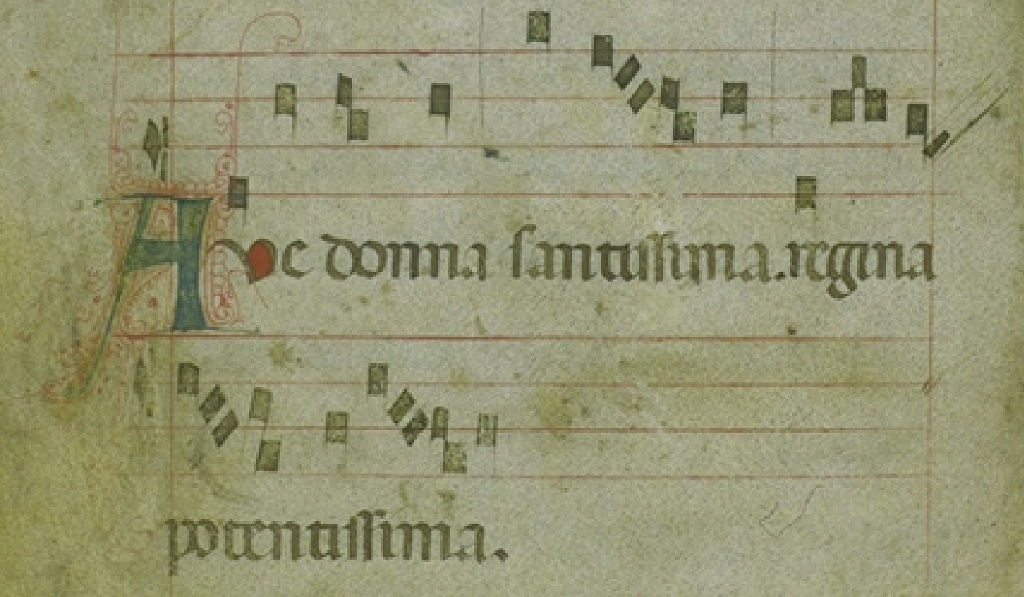 Ave donna santissima. regina
potentissima.